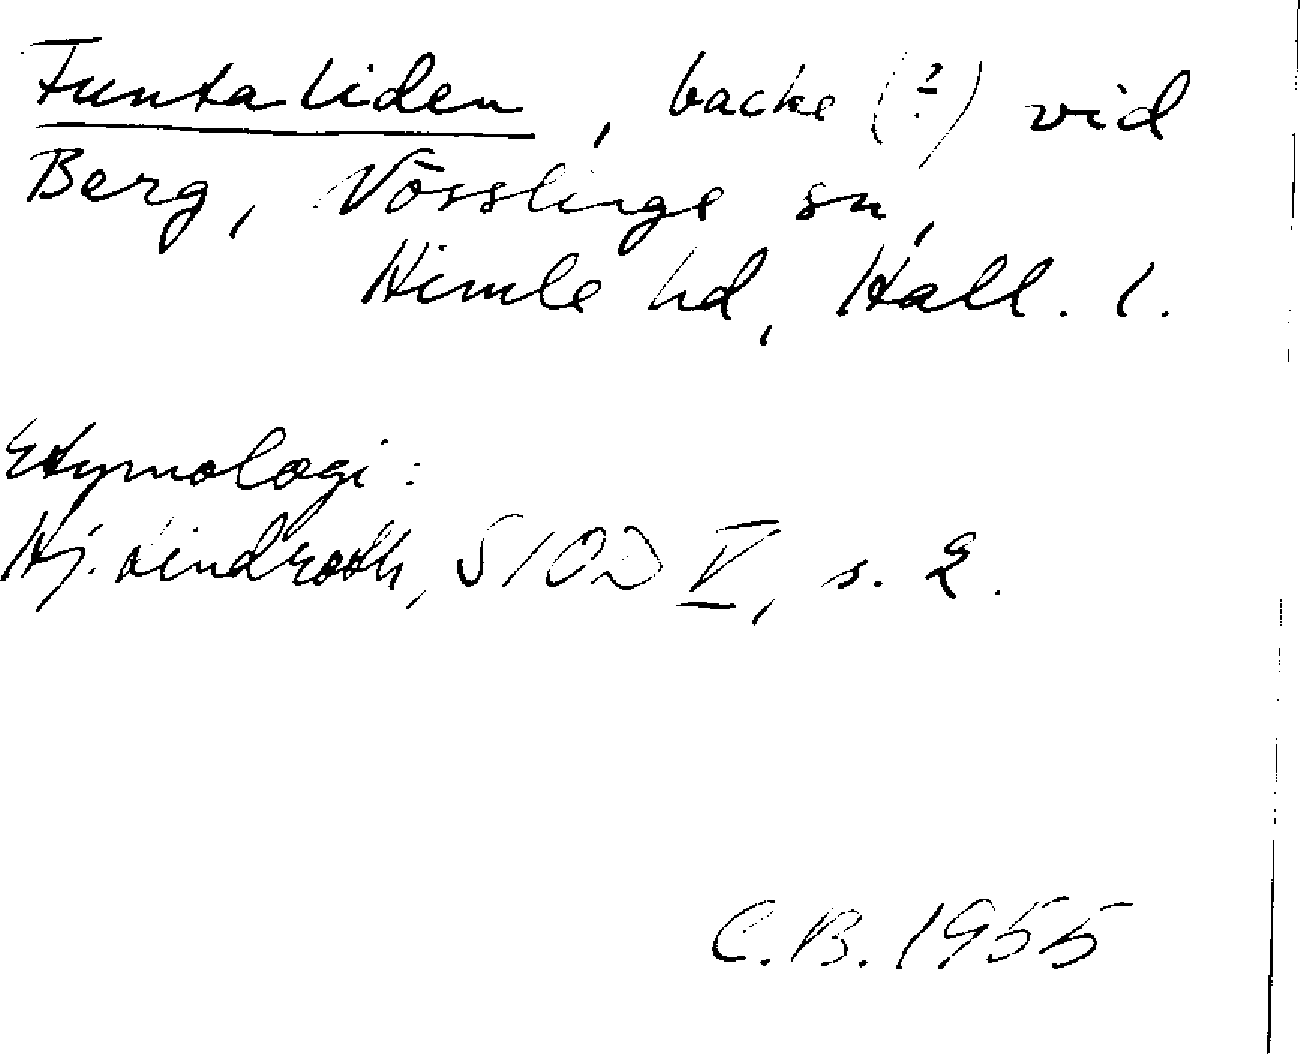 Funtaliden, backe (?) vid
Berg, Vösslinge sn,
Himle hd, Hall. l.
Etymologi:
Hj. Lindroth, SIOD V, s. 2.
C.B. 1955